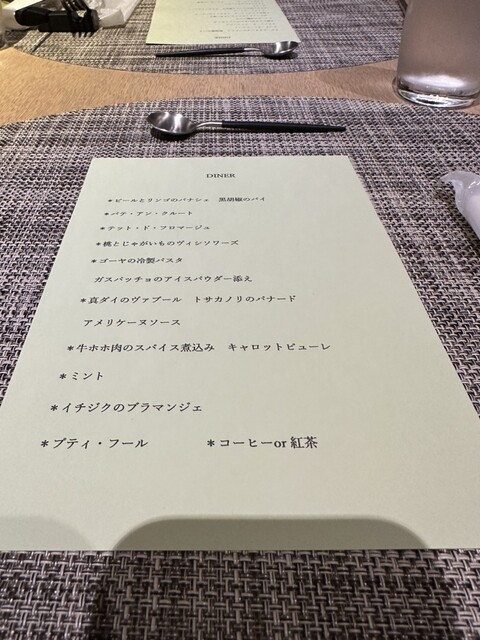 DINER
＊ビールとリンゴのパナシェ　黒胡椒のパイ
＊パテ・アン・クルート
＊テット・ド・フロマージュ
＊桃とじゃがいものヴィシソワーズ
＊ゴーヤの冷製パスタ
ガスパッチョのアイスパウダー添え
＊真ダイのヴァプール　トサカノリのパナード
アメリケーヌソース
＊牛ホホ肉のスパイス煮込み　キャロットピューレ
＊ミント
＊イチジクのブラマンジェ
＊プティ・フール　　　＊コーヒーor 紅茶